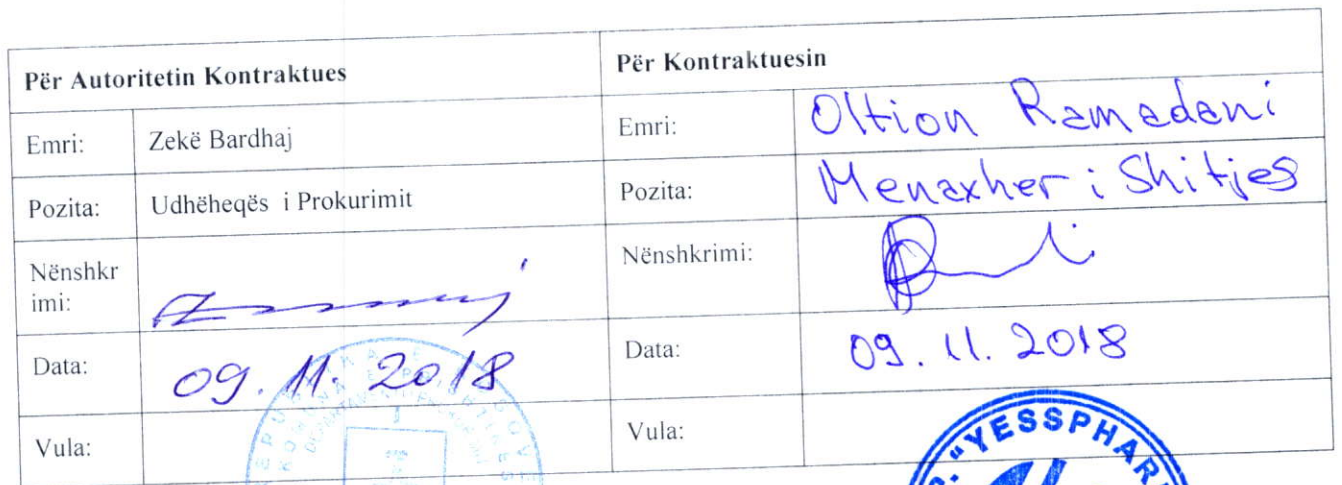 Për Autoritetin Kontraktues
Për Kontraktuesin
Emri: Zekë Bardhaj
Emri: Oltion Ramadani
Pozita: Udhëheqës i Prokurimit
Pozita: Menaxher i Shitjes
Nënshkrimi:
Nënshkrimi:
Data: 09.11.2018
Data: 09.11.2018
Vula:
Vula:
"YESSPHAR